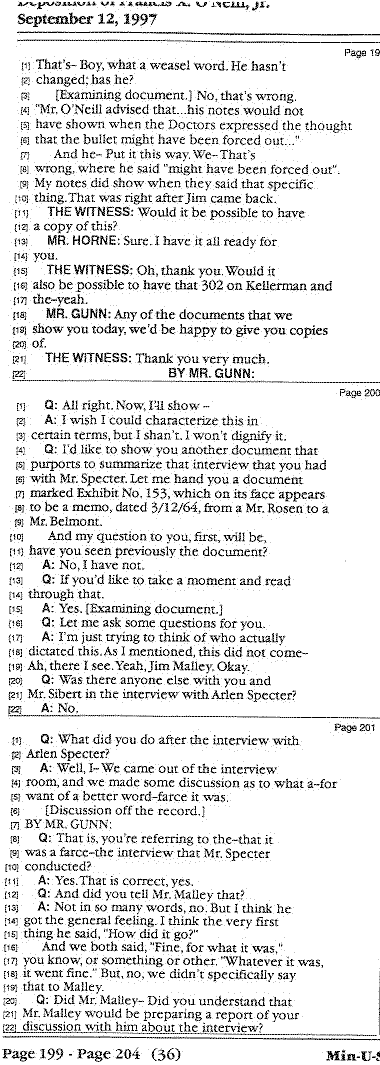 Deposition of Francis X. O'Neill, Jr.
September 12, 1997
Page 19
[1] That's– Boy, what a weasel word. He hasn't
[2] changed; has he?
[3] [Examining document.] No, that's wrong.
[4] "Mr. O'Neill advised that...his notes would not
[5] have shown when the Doctors expressed the thought
[6] that the bullet might have been forced out..."
[7] And he– Put it this way. We–That's
[8] wrong, where he said "might have been forced out".
[9] My notes did show when they said that specific
[10] thing. That was right after Jim came back.
[11] THE WITNESS: Would it be possible to have
[12] a copy of this?
[13] MR. HORNE: Sure. I have it all ready for
[14] you.
[15] THE WITNESS: Oh, thank you. Would it
[16] also be possible to have that 302 on Kellerman and
[17] the–yeah.
[18] MR. GUNN: Any of the documents that we
[19] show you today, we'd be happy to give you copies
[20] of.
[21] THE WITNESS: Thank you very much.
[22] BY MR. GUNN:
Page 200
[1] Q: All right. Now, I'll show –
[2] A: I wish I could characterize this in
[3] certain terms, but I shan't. I won't dignify it.
[4] Q: I'd like to show you another document that
[5] purports to summarize that interview that you had
[6] with Mr. Specter. Let me hand you a document
[7] marked Exhibit No. 153, which on its face appears
[8] to be a memo, dated 3/12/64, from a Mr. Rosen to a
[9] Mr. Belmont.
[10] And my question to you, first, will be,
[11] have you seen previously the document?
[12] A: No, I have not.
[13] Q: If you'd like to take a moment and read
[14] through that.
[15] A: Yes. [Examining document.]
[16] Q: Let me ask some questions for you.
[17] A: I'm just trying to think of who actually
[18] dictated this. As I mentioned, this did not come–
[19] Ah, there I see. Yeah, Jim Malley. Okay.
[20] Q: Was there anyone else with you and
[21] Mr. Sibert in the interview with Arlen Specter?
[22] A: No.
Page 201
[1] Q: What did you do after the interview with
[2] Arlen Specter?
[3] A: Well, I– We came out of the interview
[4] room, and we made some discussion as to what a–for
[5] want of a better word–farce it was.
[6] [Discussion off the record.]
[7] BY MR. GUNN:
[8] Q: That is, you're referring to the–that it
[9] was a farce–the interview that Mr. Specter
[10] conducted?
[11] A: Yes. That is correct, yes.
[12] Q: And did you tell Mr. Malley that?
[13] A: Not in so many words, no. But I think he
[14] got the general feeling. I think the very first
[15] thing he said, "How did it go?"
[16] And we both said, "Fine, for what it was,"
[17] you know, or something or other. "Whatever it was,
[18] it went fine." But, no, we didn't specifically say
[19] that to Malley.
[20] Q: Did Mr. Malley– Did you understand that
[21] Mr. Malley would be preparing a report of your
[22] discussion with him about the interview?
Page 199 - Page 204 (36) Min-U-S